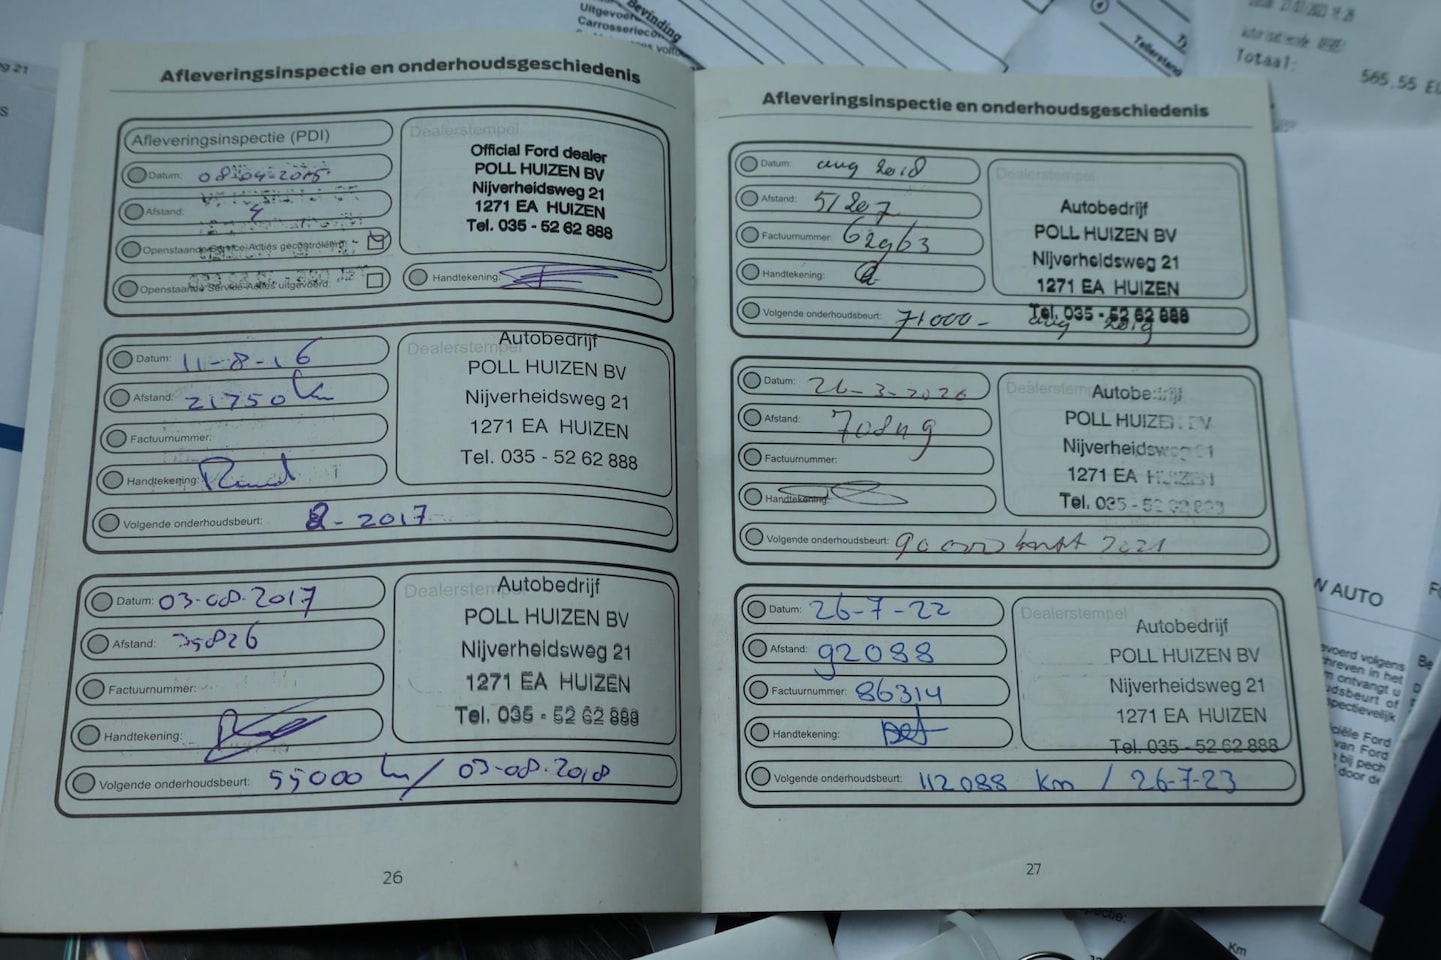 Bevinding
Totaal:
565,55
Afleveringsinspectie en onderhoudsgeschiedenis
Afleveringsinspectie (PDI)
Datum: 08-04-2015
Afstand: 4
Openstaande Service-Acties gecontroleerd:
Openstaande Service-Acties uitgevoerd:
Dealerstempel
Official Ford dealer
POLL HUIZEN BV
Nijverheidsweg 21
1271 EA HUIZEN
Tel. 035 - 52 62 888
Handtekening:
Datum: 11-8-16
Afstand: 21750 km
Factuurnummer:
Handtekening:
Volgende onderhoudsbeurt: 8-2017
Dealerstempel
Autobedrijf
POLL HUIZEN BV
Nijverheidsweg 21
1271 EA HUIZEN
Tel. 035 - 52 62 888
Datum: 03-08-2017
Afstand: 35826
Factuurnummer:
Handtekening:
Volgende onderhoudsbeurt: 55000 km / 03-08-2018
Dealerstempel
Autobedrijf
POLL HUIZEN BV
Nijverheidsweg 21
1271 EA HUIZEN
Tel. 035 - 52 62 888
26
Afleveringsinspectie en onderhoudsgeschiedenis
Datum: aug 2018
Afstand: 51207
Factuurnummer: 62963
Handtekening:
Volgende onderhoudsbeurt: 71000- aug 2019
Dealerstempel
Autobedrijf
POLL HUIZEN BV
Nijverheidsweg 21
1271 EA HUIZEN
Tel. 035 - 52 62 888
Datum: 26-3-2020
Afstand:
Factuurnummer:
Handtekening:
Volgende onderhoudsbeurt: 2021
Dealerstempel
Autobedrijf
POLL HUIZEN BV
Nijverheidsweg 21
1271 EA HUIZEN
Tel. 035 - 52 62 888
Datum: 26-7-22
Afstand: 92088
Factuurnummer: 86314
Handtekening:
Volgende onderhoudsbeurt: 112088 km / 26-7-23
Dealerstempel
Autobedrijf
POLL HUIZEN BV
Nijverheidsweg 21
1271 EA HUIZEN
Tel. 035 - 52 62 888
27
AUTO
Km